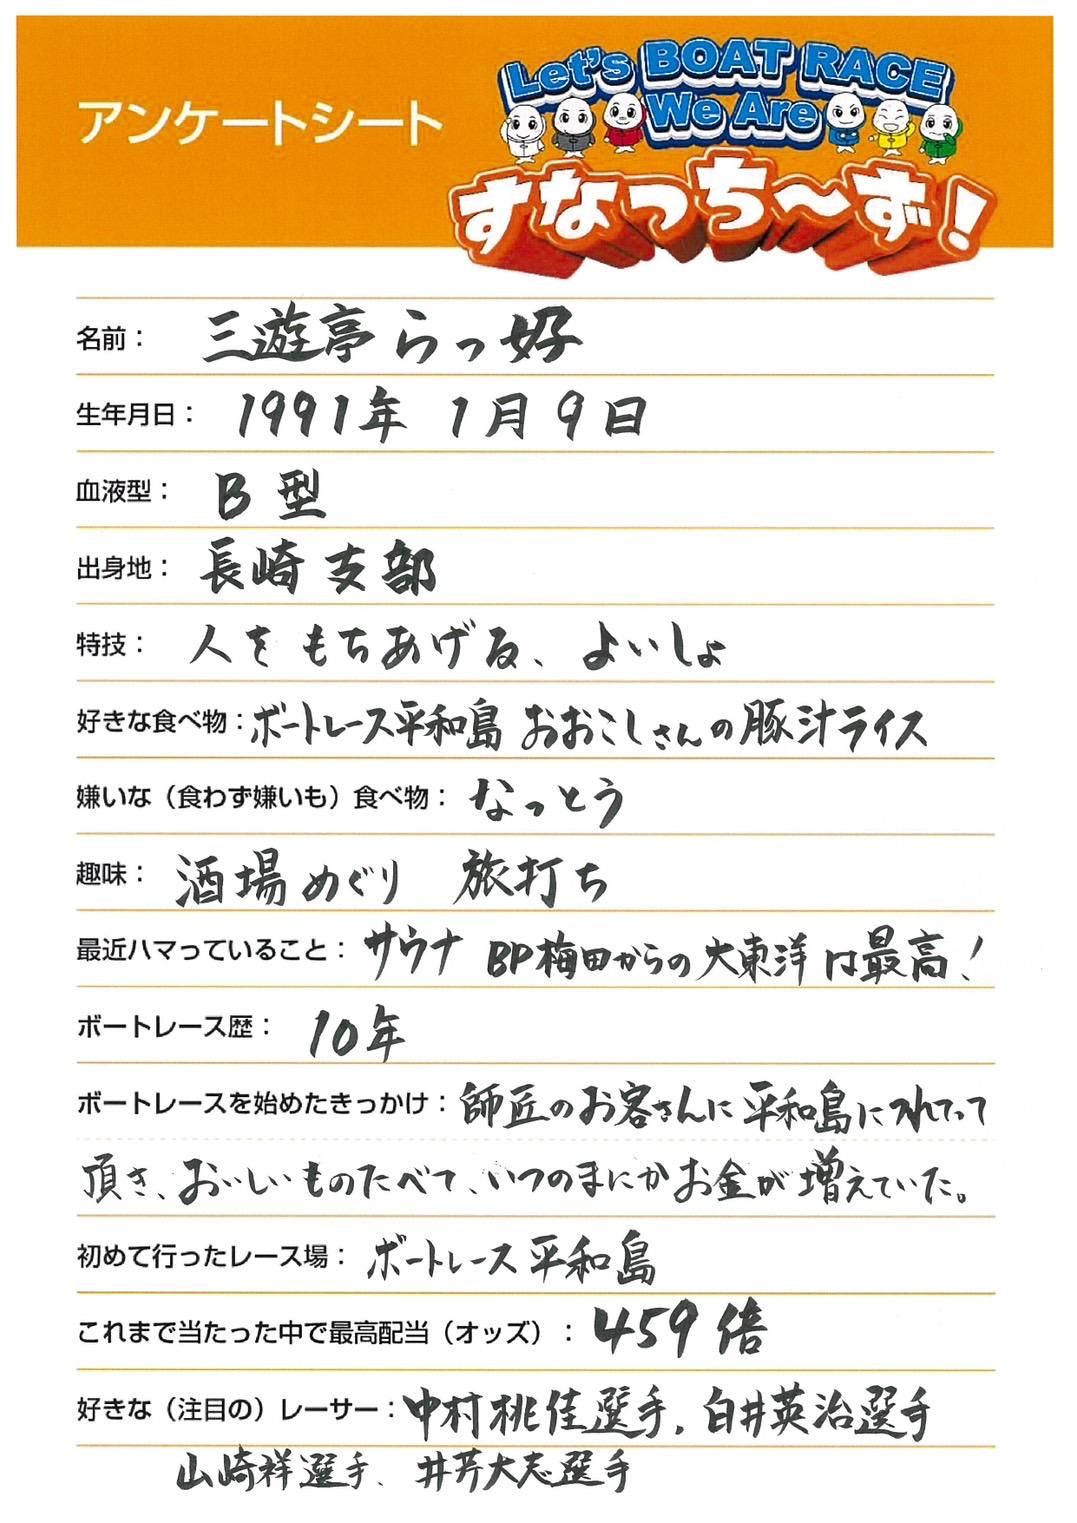 アンケートシート
Let's BOAT RACE
We Are
すなっち～ず!
名前： 三遊亭らっ好
生年月日： 1991年 1月9日
血液型： B型
出身地： 長崎支部
特技： 人をもちあげる、よいしょ
好きな食べ物：ボートレース平和島 おおこしさんの豚汁ライス
嫌いな（食わず嫌いも）食べ物： なっとう
趣味： 酒場めぐり 旅打ち
最近ハマっていること： サウナ BP梅田からの大東洋は最高！
ボートレース歴： 10年
ボートレースを始めたきっかけ： 師匠のお客さんに平和島につれてって
頂き、おいしいものたべて、いつのまにかお金が増えていた。
初めて行ったレース場： ボートレース平和島
これまで当たった中で最高配当（オッズ）： 459倍
好きな（注目の）レーサー：中村桃佳選手、白井英治選手
山崎祥選手、井芹大志選手